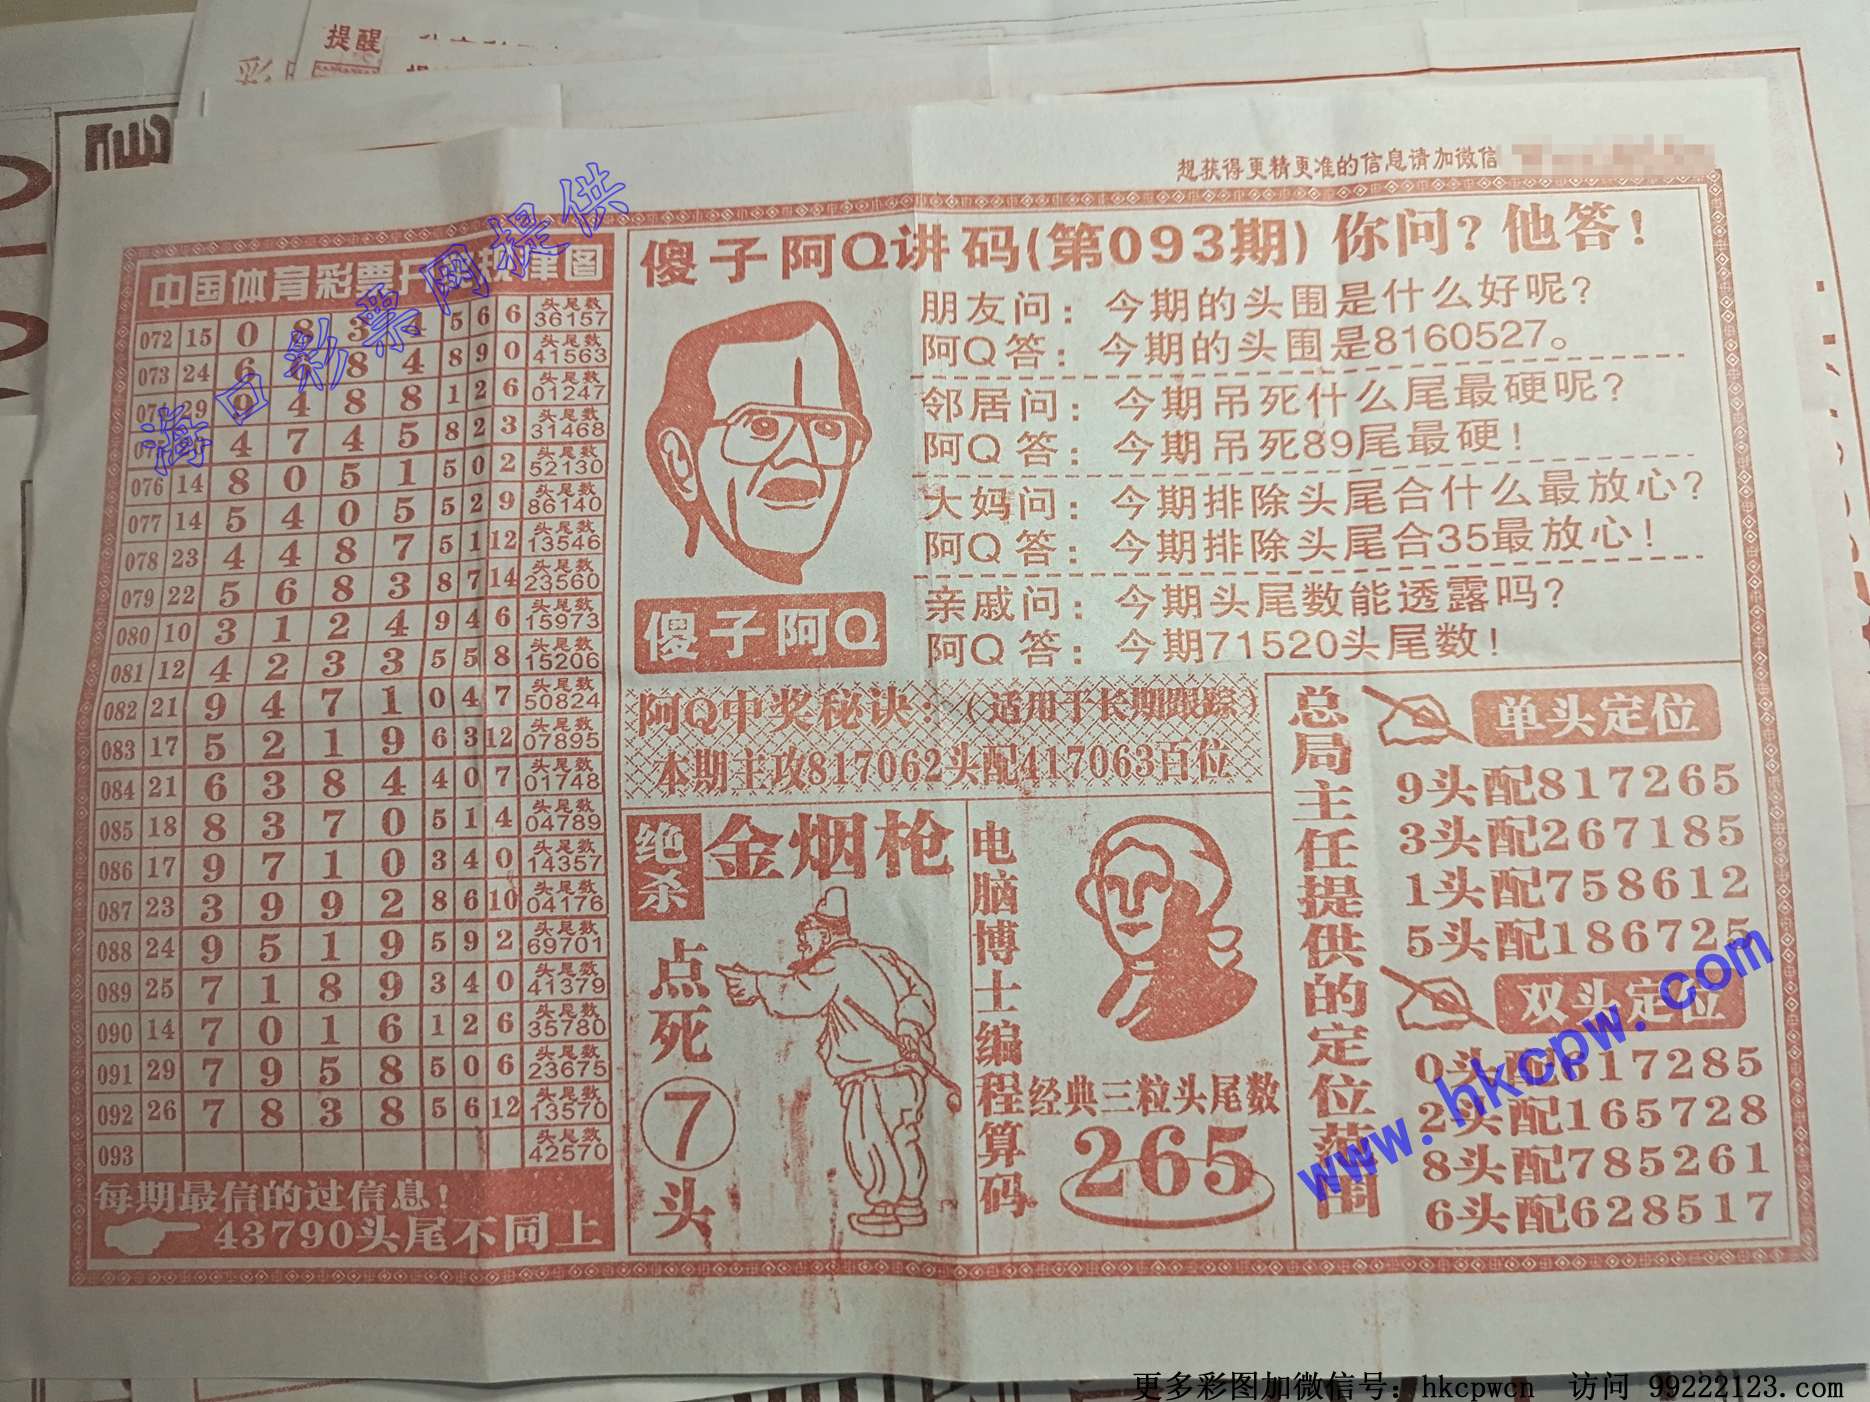 提醒
想获得更精更准的信息请加微信
海口彩票网提供
中国体育彩票开 律图
072 15 0 8 3 4 5 6 6 头尾数 36157
073 24 6 6 8 4 8 9 0 头尾数 41563
29 9 4 8 8 1 2 6 头尾数 01247
4 7 4 5 8 2 3 头尾数 31468
076 14 8 0 5 1 5 0 2 头尾数 52130
077 14 5 4 0 5 5 2 9 头尾数 86140
078 23 4 4 8 7 5 1 12 头尾数 13546
079 22 5 6 8 3 8 7 14 头尾数 23560
080 10 3 1 2 4 9 4 6 头尾数 15973
081 12 4 2 3 3 5 5 8 头尾数 15206
082 21 9 4 7 1 0 4 7 头尾数 50824
083 17 5 2 1 9 6 3 12 头尾数 07895
084 21 6 3 8 4 4 0 7 头尾数 01748
085 18 8 3 7 0 5 1 4 头尾数 04789
086 17 9 7 1 0 3 4 0 头尾数 14357
087 23 3 9 9 2 8 6 10 头尾数 04176
088 24 9 5 1 9 5 9 2 头尾数 69701
089 25 7 1 8 9 3 4 0 头尾数 41379
090 14 7 0 1 6 1 2 6 头尾数 35780
091 29 7 9 5 8 5 0 6 头尾数 23675
092 26 7 8 3 8 5 6 12 头尾数 13570
093 头尾数 42570
每期最信的过信息!
43790头尾不同上
傻子阿Q讲码(第093期) 你问?他答!
朋友问:今期的头围是什么好呢?
阿Q答:今期的头围是8160527。
邻居问:今期吊死什么尾最硬呢?
阿Q答:今期吊死89尾最硬!
大妈问:今期排除头尾合什么最放心?
阿Q答:今期排除头尾合35最放心!
亲戚问:今期头尾数能透露吗?
阿Q答:今期71520头尾数!
傻子阿Q
阿Q中奖秘诀:(适用于长期跟踪)
本期主攻817062头配417063百位
绝杀
金烟枪
点死⑦头
电脑博士编程算码
经典三粒头尾数
265
总局主任提供的定位范围
单头定位
9头配817265
3头配267185
1头配758612
5头配186725
双头定位
0头配817285
2头配165728
8头配785261
6头配628517
www.hkcpw.com
更多彩图加微信号:hkcpwcn 访问 99222123.com